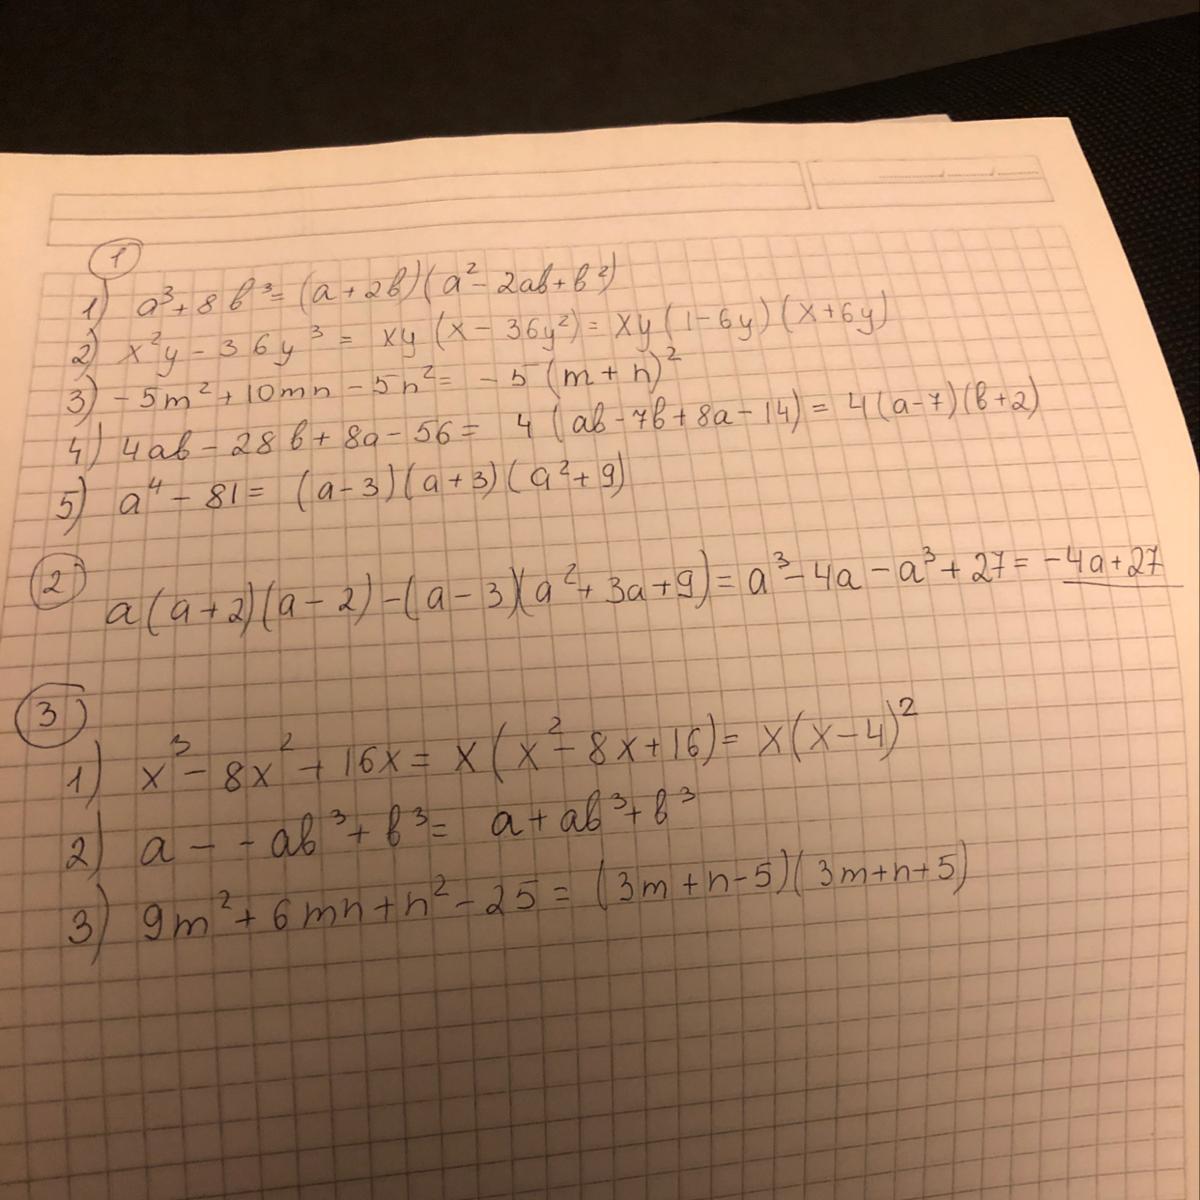 1
1) a³ + 8b³ = (a + 2b)(a² - 2ab + b²)
2) x²y - 36y³ = xy (x - 36y²) = xy (1 - 6y)(x + 6y)
3) - 5m² + 10mn - 5n² = - 5 (m + n)²
4) 4ab - 28b + 8a - 56 = 4 (ab - 7b + 8a - 14) = 4(a - 7)(b + 2)
5) a⁴ - 81 = (a - 3)(a + 3)(a² + 9)
2
a(a + 2)(a - 2) - (a - 3)(a² + 3a + 9) = a³ - 4a - a³ + 27 = - 4a + 27
3
1) x³ - 8x² + 16x = x(x² - 8x + 16) = x(x - 4)²
2) a - - ab³ + b³ = a + ab³ + b³
3) 9m² + 6mn + n² - 25 = (3m + n - 5)(3m + n + 5)